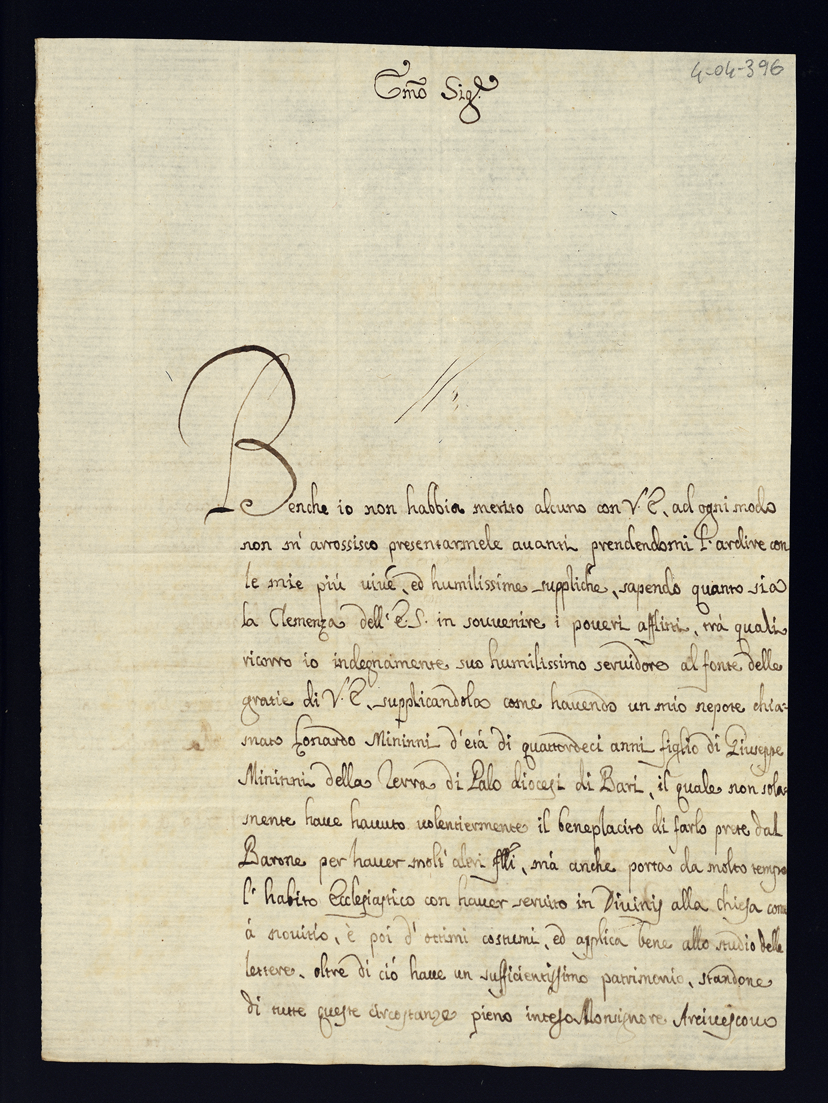 4-04-396
Em̃o Sig.r
Benche io non habbia merito alcuno con V. E., ad ogni modo
non m'arrossisco presentarmele auanti prendendomi l'ardire con
le mie più uiue, ed humilissime suppliche, sapendo quanto sia
la Clemenza dell'E.S. in souuenire i poueri afflitti, trà quali
ricorro io indegnamente suo humilissimo seruidore al fonte delle
gratie di V. E., supplicandola come hauendo un mio nepote chia-
mato Lonardo Mininni d'età di quattordeci anni figlio di Giuseppe
Mininni della Terra di Palo diocesi di Bari, il quale non sola-
mente haue hauuto uolentiermente il beneplacito di farlo prete dal
Barone per hauer molt'altri flli, mà anche porta da molto tempo
l'habito Ecclesiastico con hauer seruito in Diuinis alla chiesa come
à nouitio, è poi d'ottimi costumi, ed applica bene allo studio delle
lettere, oltre di ciò haue un sufficientissimo patrimonio, standone
di tutte queste circostanze pieno inteso Monsignore Arciuescouo